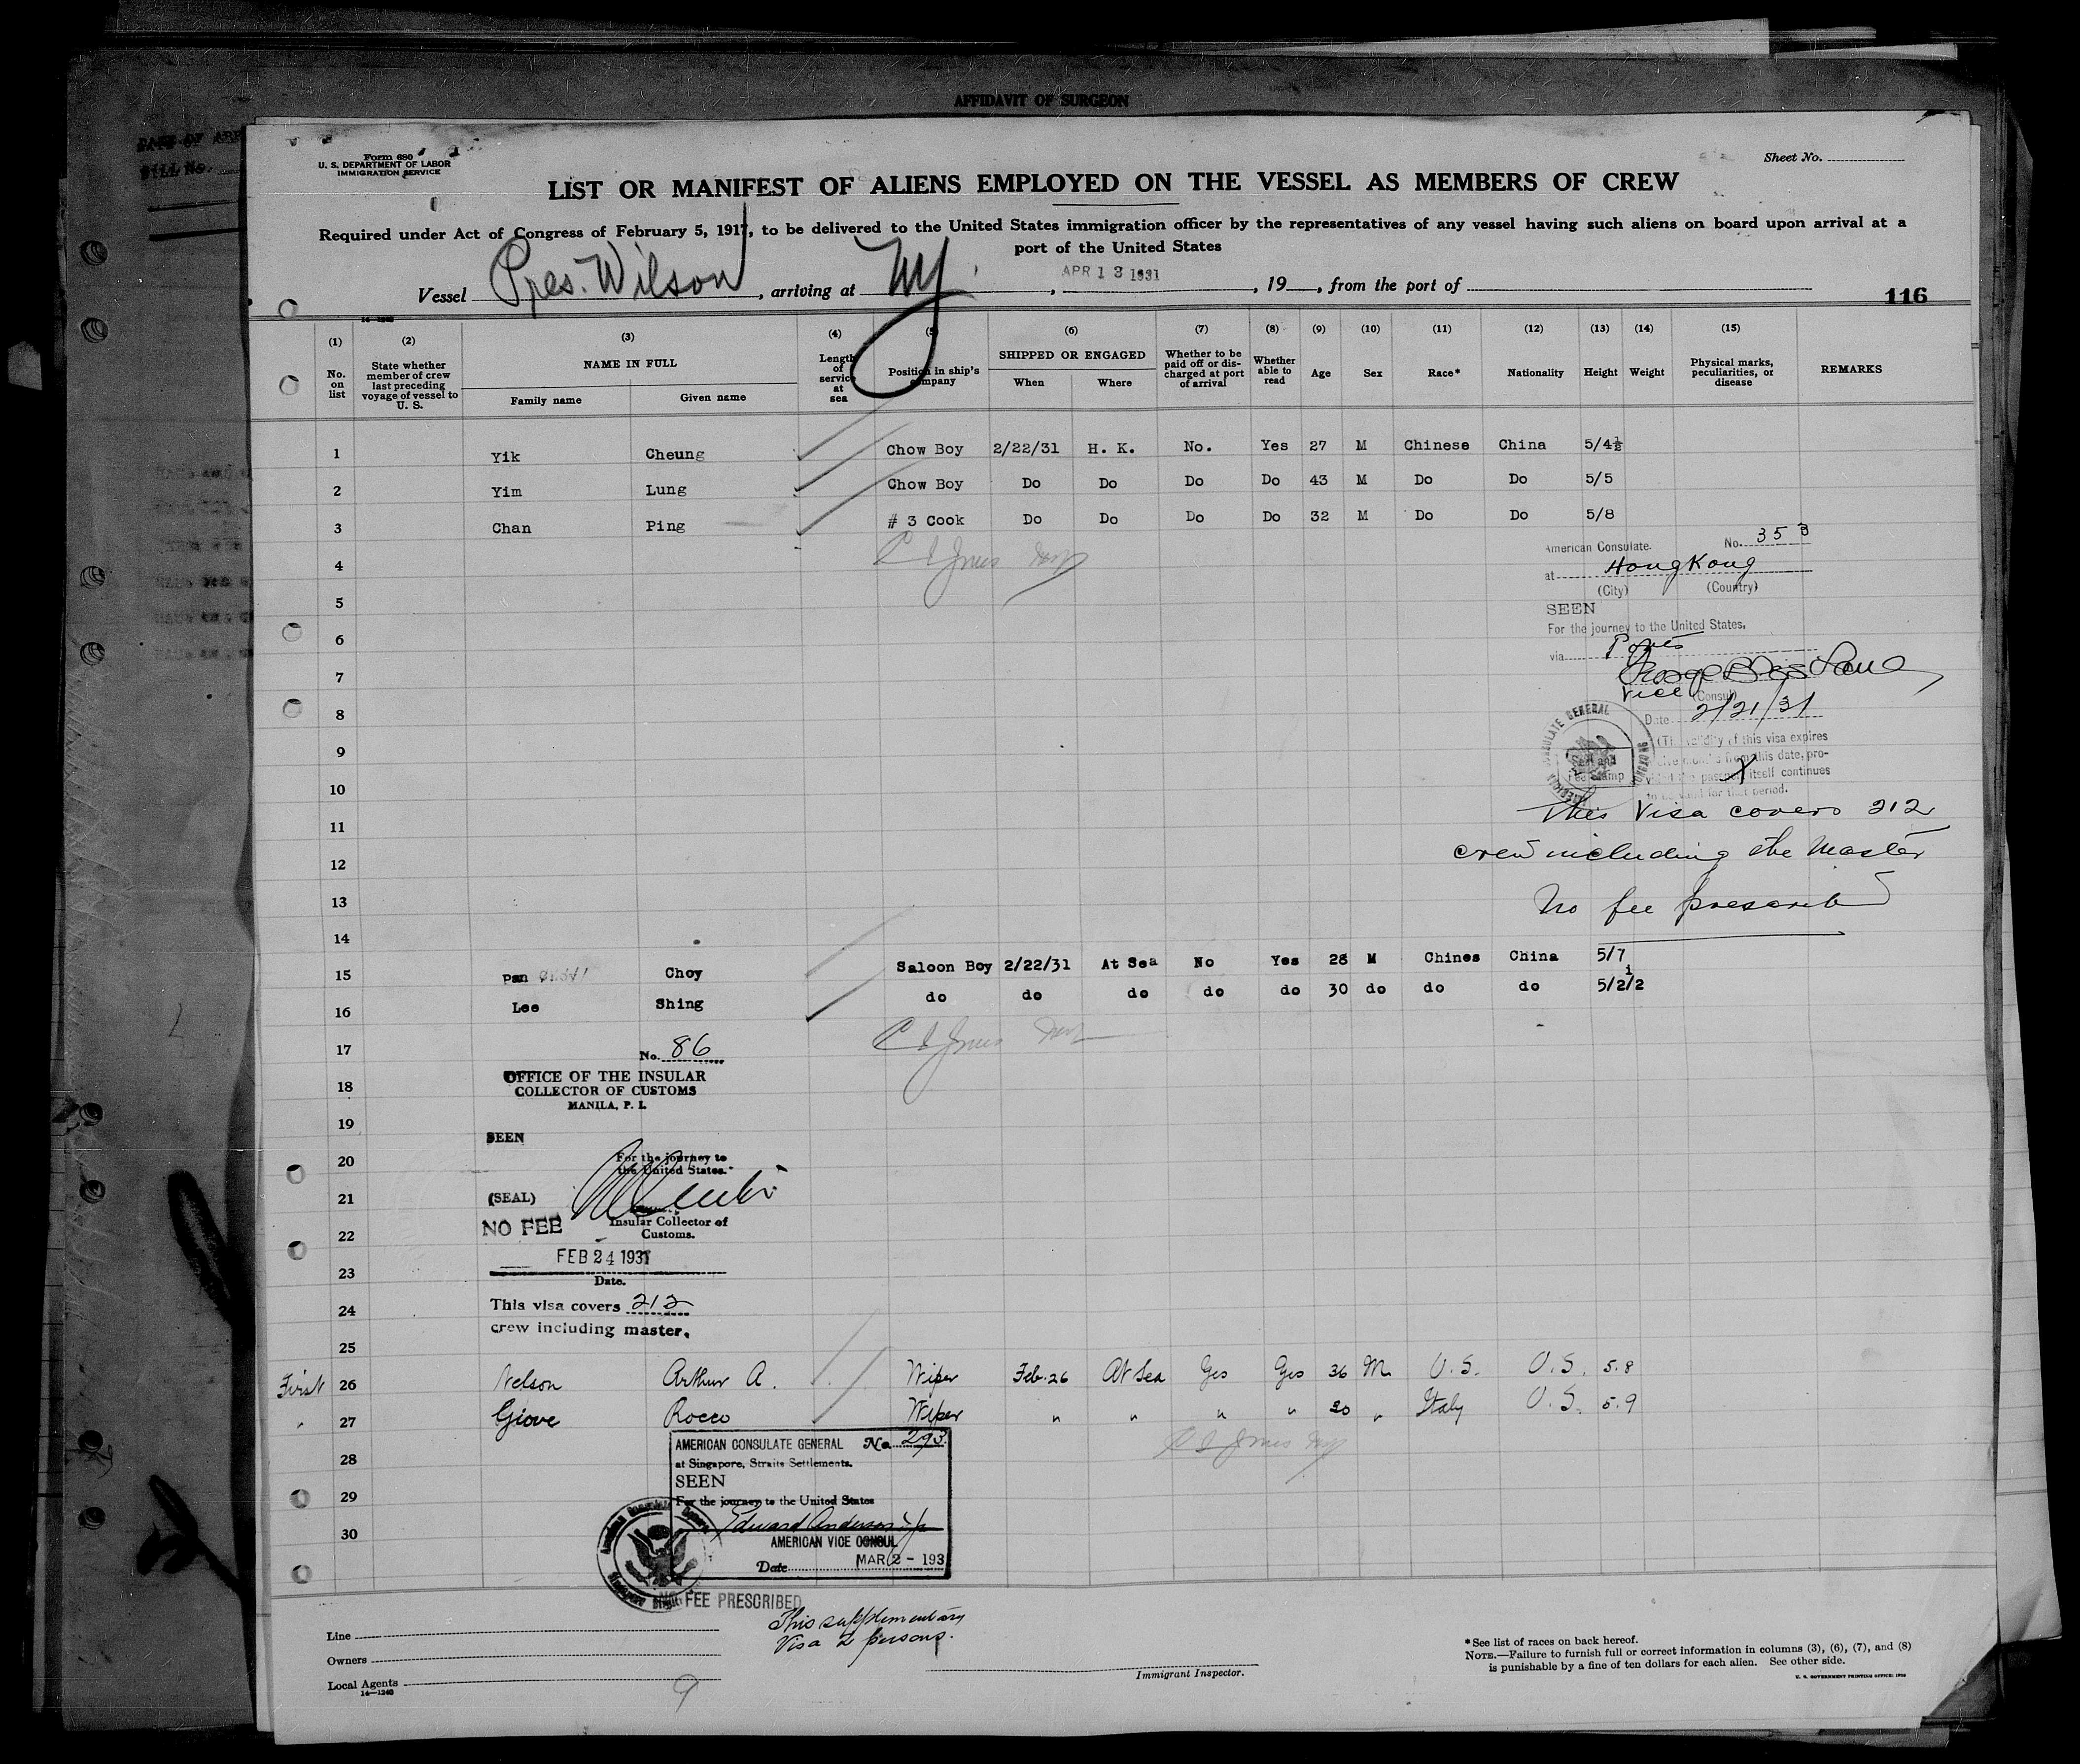 AFFIDAVIT OF SURGEON
Form 680
U. S. DEPARTMENT OF LABOR
IMMIGRATION SERVICE
Sheet No.
LIST OR MANIFEST OF ALIENS EMPLOYED ON THE VESSEL AS MEMBERS OF CREW
Required under Act of Congress of February 5, 1917, to be delivered to the United States immigration officer by the representatives of any vessel having such aliens on board upon arrival at a
port of the United States
Vessel Pres. Wilson, arriving at NY, APR 13 1931, 19, from the port of
116
(1) (2) (3) (4) (5) (6) (7) (8) (9) (10) (11) (12) (13) (14) (15)
No. on list
State whether member of crew last preceding voyage of vessel to U. S.
NAME IN FULL
Family name Given name
Length of service at sea
Position in ship's company
SHIPPED OR ENGAGED
When Where
Whether to be paid off or discharged at port of arrival
Whether able to read
Age Sex Race* Nationality Height Weight
Physical marks, peculiarities, or disease
REMARKS
1 Yik Cheung Chow Boy 2/22/31 H. K. No. Yes 27 M Chinese China 5/4½
2 Yim Lung Chow Boy Do Do Do Do 43 M Do Do 5/5
3 Chan Ping # 3 Cook Do Do Do Do 32 M Do Do 5/8
4
5
6
7
8
9
10
11
12
13
14
American Consulate. No. 353
at HongKong
(City) (Country)
SEEN
For the journey to the United States,
via Ports
Vice (Consul)
Date 2/21/31
(The validity of this visa expires
months from this date, pro-
vided the passport itself continues
to be valid for that period.
This Visa covers 212
crew including the Master
No fee prescribed
15 Pan Choy Saloon Boy 2/22/31 At Sea No Yes 28 M Chines China 5/7
16 Lee Shing do do do do do 30 do do do 5/2 1/2
17
18
19
20
21
22
23
24
25
No. 86
OFFICE OF THE INSULAR
COLLECTOR OF CUSTOMS
MANILA, P. I.
SEEN
For the journey to
the United States.
(SEAL)
NO FEE
Insular Collector of
Customs.
FEB 24 1931
Date.
This visa covers 212
crew including master.
First 26 Nelson Arthur A. Wiper Feb. 26 At Sea Yes Yes 36 M U.S. U.S. 5.8
" 27 Giove Rocco Wiper " " " " 20 " Italy U.S. 5.9
28
29
30
AMERICAN CONSULATE GENERAL No. 293
at Singapore, Straits Settlements.
SEEN
For the journey to the United States
Edward Anderson Jr
AMERICAN VICE CONSUL
Date MAR 2 - 193
NO FEE PRESCRIBED
This supplementary
Visa 2 persons.
Line
Owners
Local Agents
14—1240
9
Immigrant Inspector.
*See list of races on back hereof.
NOTE.—Failure to furnish full or correct information in columns (3), (6), (7), and (8)
is punishable by a fine of ten dollars for each alien. See other side.
U. S. GOVERNMENT PRINTING OFFICE: 1930